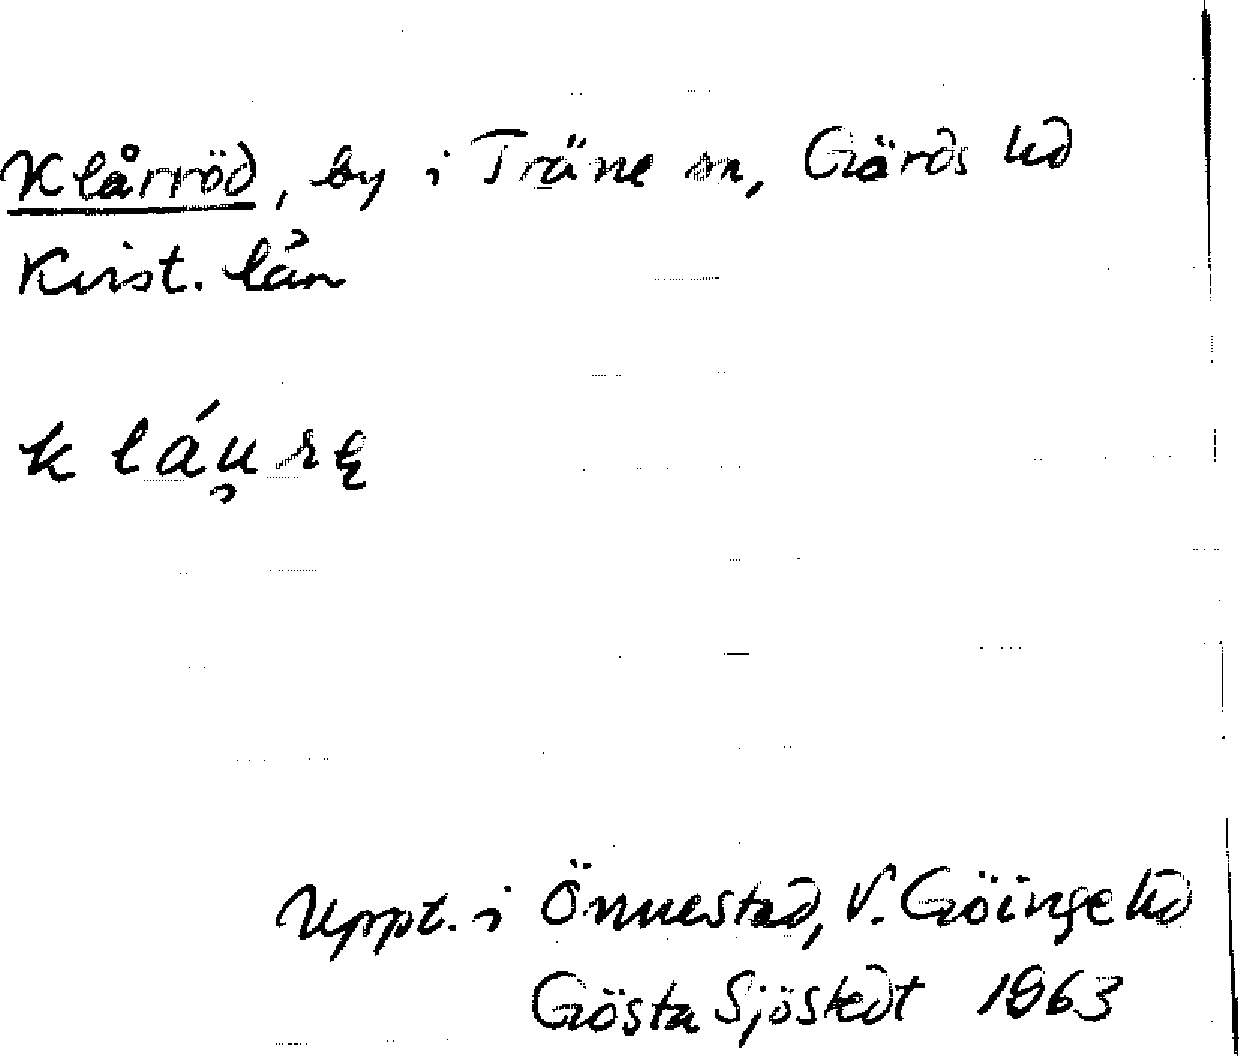 Klårröd, by i Träne sn, Gärds hd
Krist. län
kláu̯rę
Uppt. i Önnestad, V. Göinge hd
Gösta Sjöstedt 1963